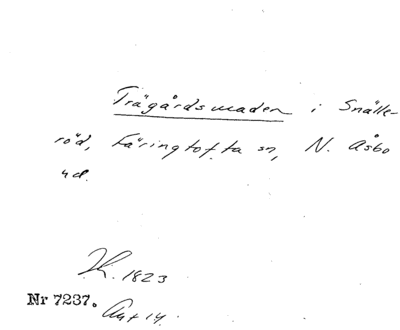 Trägårdsmaden i Snälle-
röd, Färingtofta sn, N. Åsbo
hd.
H. 1823
Nr 7237.
Akt 14.